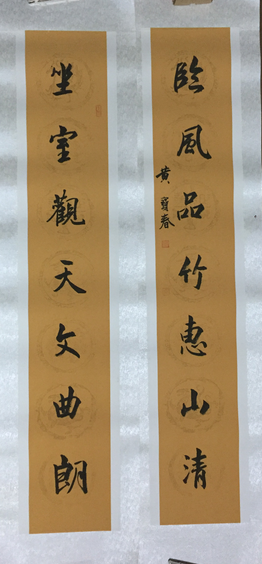 臨風品竹惠山清
黄春
坐室觀天文曲朗